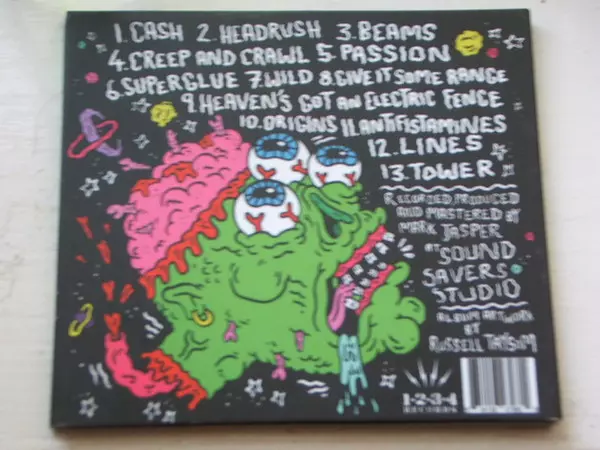 1. CASH 2. HEADRUSH 3. BEAMS
4. CREEP AND CRAWL 5. PASSION
6. SUPERGLUE 7. WILD 8. GIVE IT SOME RANGE
9. HEAVEN'S GOT AN ELECTRIC FENCE
10. ORIGINS 11. ANTIFISTAMINES
12. LINES
13. TOWER
RECORDED, PRODUCED
AND MASTERED BY
MARK JASPER
AT SOUND
SAVERS
STUDIO
ALBUM ARTWORK
BY
RUSSELL
1-2-3-4
RECORDS